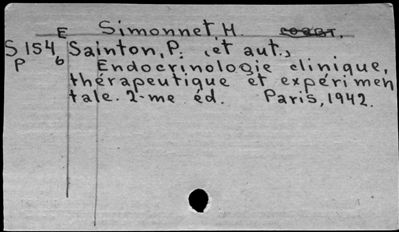 E Simonnet, H.
S 154 Sainton, P. (et aut.,
P b Endocrinologie clinique,
thérapeutique et expérimen
tale. 2-me éd. Paris, 1942.